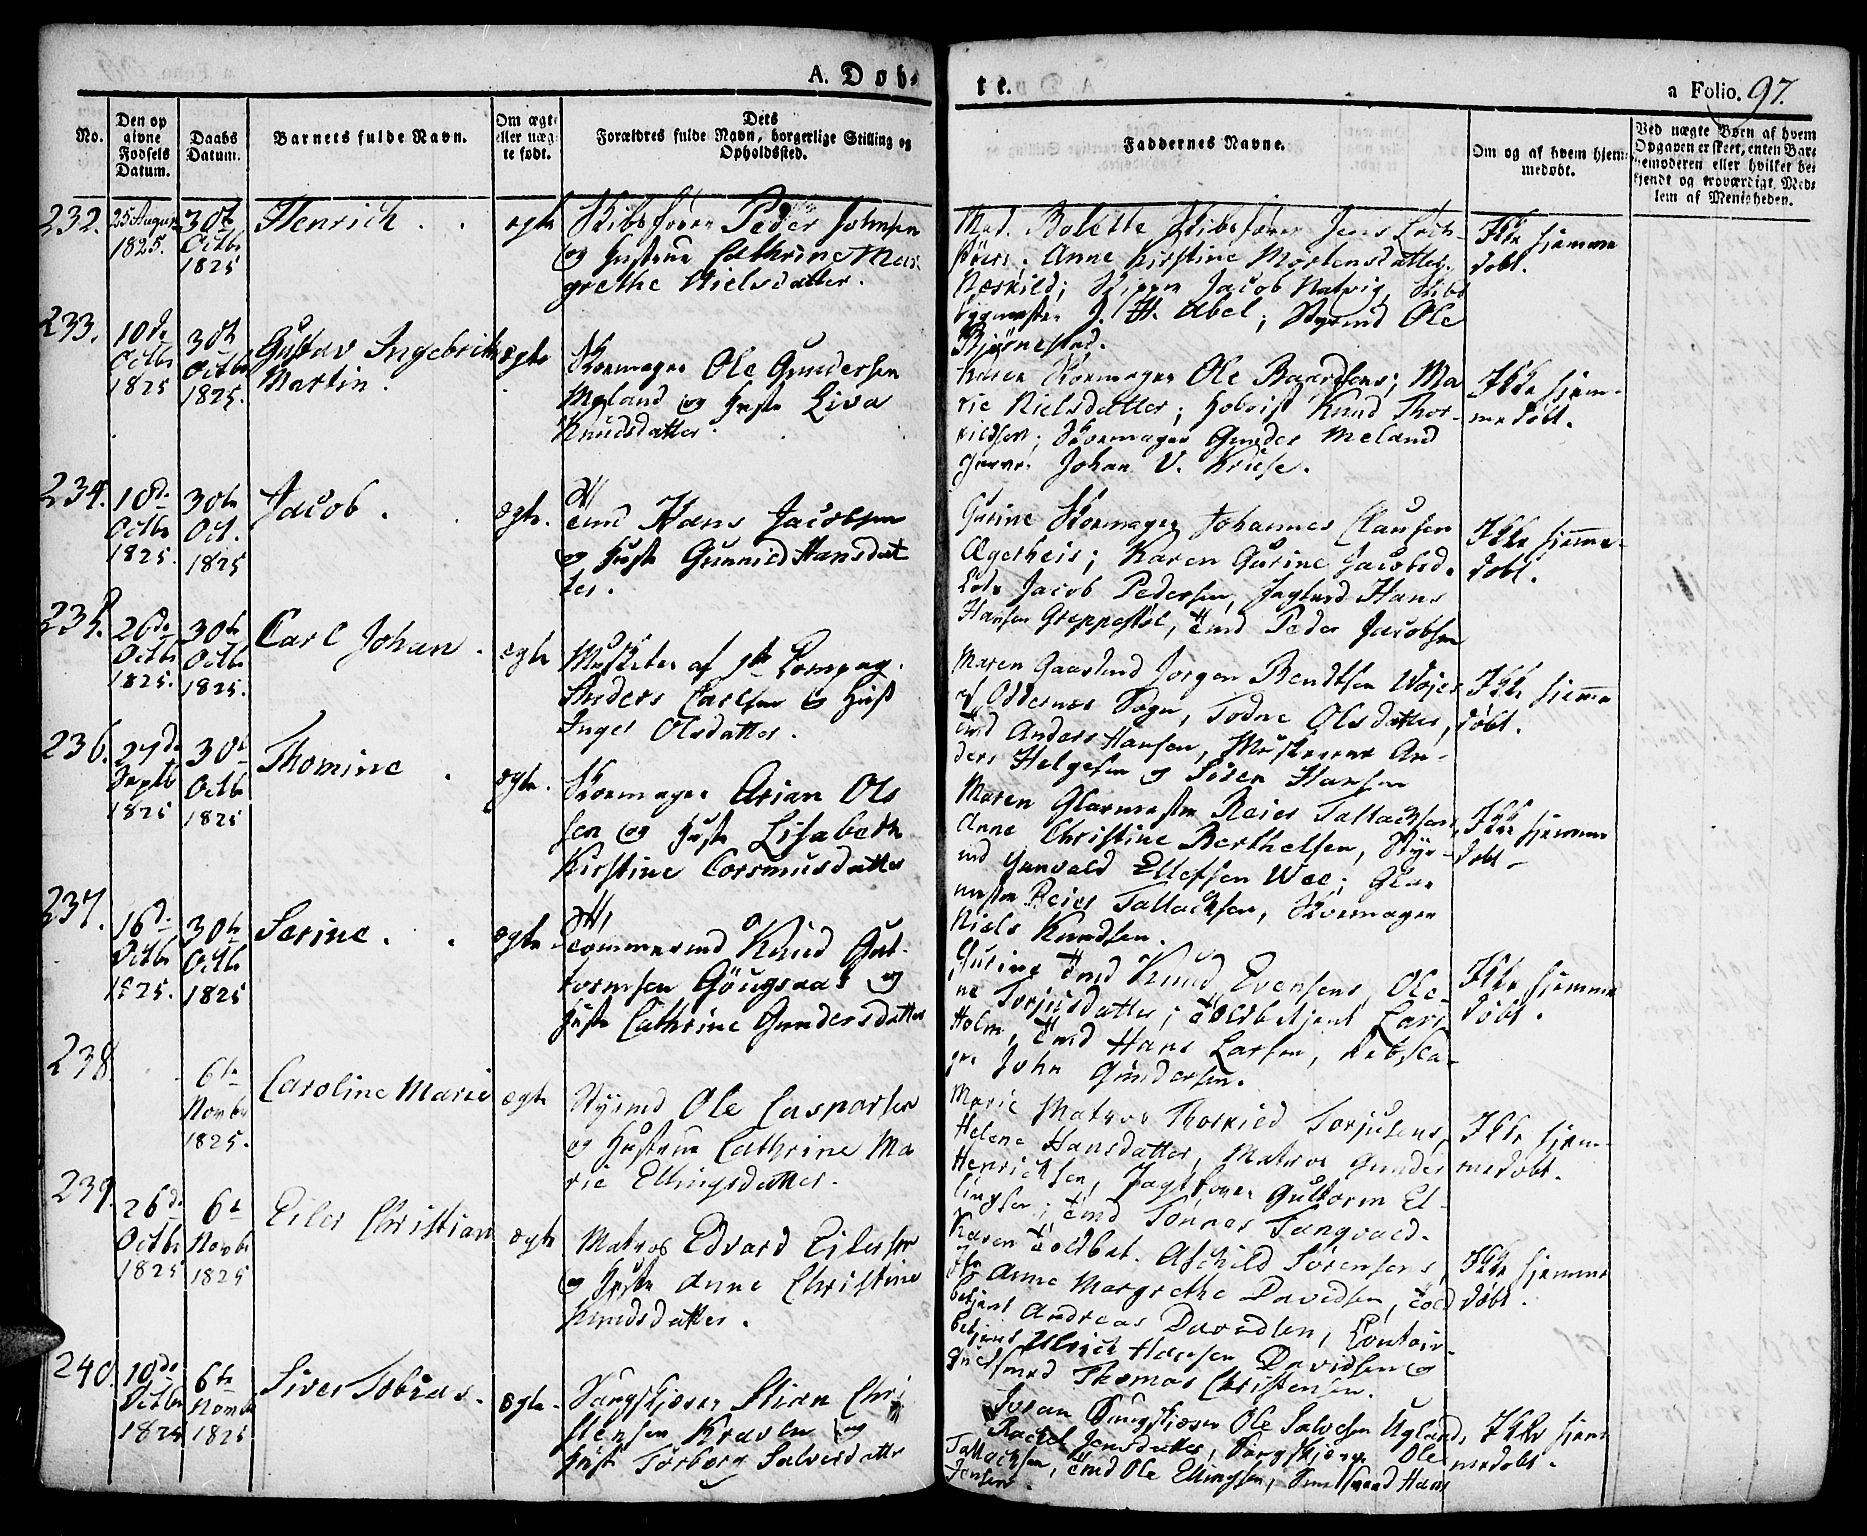 A. Døb-
te.
a Folio. 97.
No.
Den op
givne
Fødsels
Datum.
Daabs
Datum.
Barnets fulde Navn.
Om ægte
eller uæg
te født.
Dets
Forældres fulde Navn, borgerlige Stilling og
Opholdssted.
Faddernes Navne.
Om og af hvem hjem
medøbt.
Ved uægte Børn af hvem
Opgaven er skeet, enten Bar
nemoderen eller hvilket be
kjendt og troværdigt Med-
lem af Menigheden.
232.
25 August
1825.
30te
Octbr
1825
Henrich
ægte
Skibsfører Peder Johnsen
og Hustrue Cathrine Mar
grethe Nielsdatter.
Mad. Bolette Skibsfører Jens
Anne Kirstine Mortensdatter
Jacob Natvig, Skibs
bygmester J. H. Abel; Styrmd Ole
Bjørnestad.
Ikke hjemme
døbt.
233.
10de
Octbr
1825
30te
Octbr
1825.
Gustav Ingebrith
Martin.
ægte
Skoemager Ole Gundersen
Meland og Hustr Liva
Knudsdatter.
Karen Skoemager Ole Baardsens; Ma
rie Nielsdatter; Knud Thor-
kildsen; Skoemager Gunder Meland
Johan V. Kruse.
Ikke hjem-
medøbt.
234.
18de
Octbr
1825.
30te
Oct.
1825
Jacob
ægte.
Tmd Hans Jacobsen
og Hustr Gunnild Hansdat
ter.
Gurine Skoemager Johannes Clausen
Ægerheis; Karen Gurine Jacobsd.
Lods Jacob Pedersen, Hans
Hansen Greppestøl, Tmd Peder Jacobsen
Ikke hjemme-
døbt.
235.
26de
Octbr
1825.
30te
Octbr
1825.
Carl Johan
ægte
Musketer af 1te Compag.
Anders Carlsen og Hust
Inger Olsdatter.
Maren Gaardmd Jørgen Bendtsen Woje
af Oddernes Sogn, Todne Olsdatter,
Tmd Anders Hansen, Musketerne An-
ders Helgesen og Søren Hansen
Ikke hjemme
døbt.
236.
27de
Septbr
1825
30te
Octbr
1825
Thomine
ægte.
Skoemager Arian Ols
sen og Hustr Lisabeth
Kirstine Corsmusdatter
Maren Glarmester Reier Tallachsen,
Anne Christine Berthelsen, Styr-
md Gunvald Ellefsen Wee; Glar
mester Reier Tallachsen, Skoemager
Niels Knudsen.
Ikke hjemme
døbt
237.
16de
Octbr
1825.
30te
Octbr
1825
Serine.
ægte
Tømmermd Knud Gut-
tormsen og
Hustr Cathrine Gundersdatter
Gurine Tmd Knud Evensens, Ole-
ne Torjusdatter; Toldbetjent Lars
Holm, Tmd Hans Larsen,
John Gundersen.
Ikke hjemme
døbt.
238.
6te
Novbr
1825.
Caroline Marie
ægte
Styrmd Ole Caspersen
og Hustrue Cathrine Ma
rie Ellingsdatter.
Marie Matros Thorkild Torjusens,
Helene Hansdatter, Matros Gunder
Henrichsen, Jagtfører Guttorm El-
lingsen; Tmd Tønnes Tangvald.
Ikke hjem-
medøbt.
239.
26de
Octbr
1825
6te
Novbr
1825
Eiler Christian
ægte
Matros Edvard Eilersen
og Hustr Anne Christine
Knudsdatter.
Karen Toldbet. Aschild Sørensens
Anne Margrethe Davidsen, Told
betjent Andreas Davidsen, Contoir-
betjent Ulrich Hansen Davidsen og
Thomas Christensen.
Ikke hjemme
døbt.
240.
10de
Octbr
1825
6te
Novbr
1825
Siver Tobias.
ægte.
Stian Chri
stensen og
Hust Torborg Salvesdatter
Ole Salvesen Ugland,
Rachel Jensdatter, Ole
Tallachsen, Tmd Ole Ellingsen, Hans
Jensen.
Ikke hjem
medøbt.